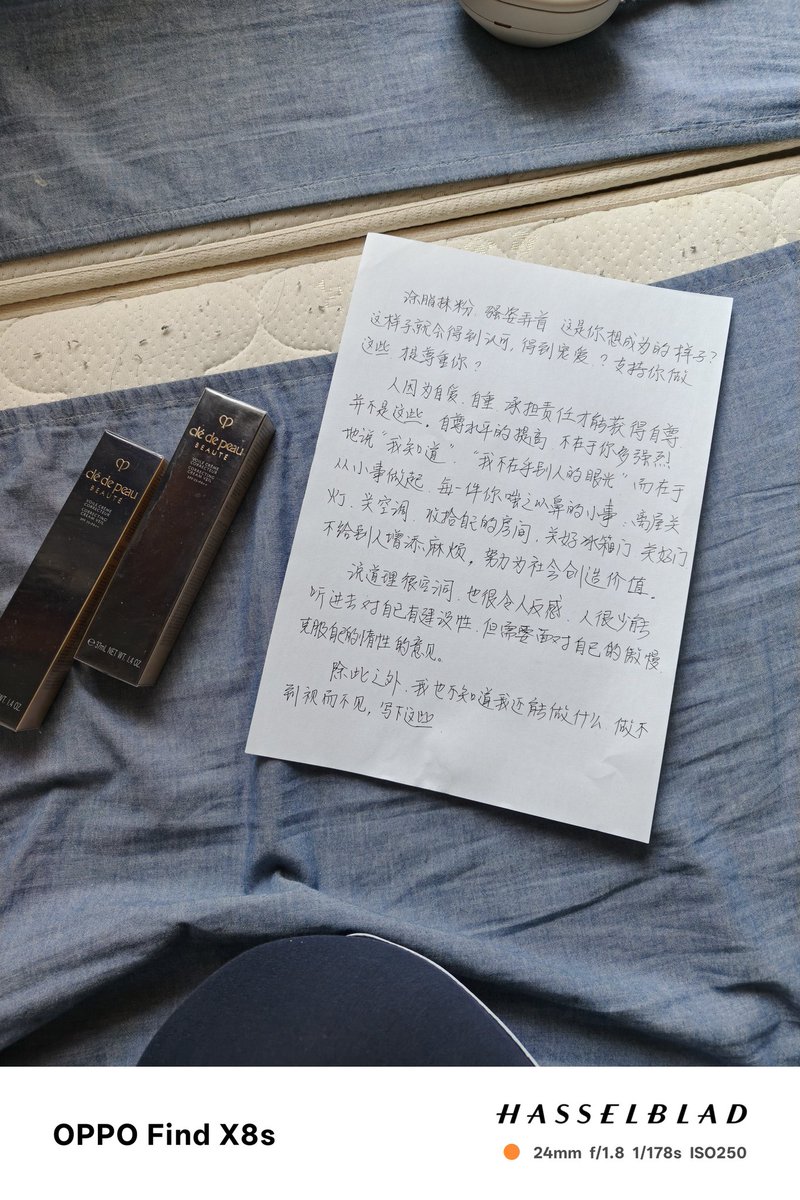 clé de peau
BEAUTÉ
VOILE CRÈME
CORRECTEUR
CORRECTING
CREAM VEIL
clé de peau
BEAUTÉ
VOILE CRÈME
CORRECTEUR
CORRECTING
CREAM VEIL
37mL NET WT. 1.4 OZ.
WT. 1.4 OZ.
涂脂抹粉 搔姿弄首 这是你想成为的样子?
这样子就会得到认可,得到宠爱?支持你做
这些 想尊重你?
人因为自爱、自重、承担责任才能获得自尊
并不是这些,自尊水平的提高 不在于你多强烈
地说“我知道”、“我不在乎别人的眼光”而在于
从小事做起,每一件你嗤之以鼻的小事:离屋关
灯、关空调、收拾自己的房间,关好冰箱门 关好门
不给别人增添麻烦,努力为社会创造价值。
说道理很空洞,也很令人反感,人很少能
听进去对自己有建设性、但需要面对自己的傲慢、
克服自己的惰性的意见。
除此之外,我也不知道我还能做什么,做不
到视而不见,写下这些.
OPPO Find X8s
HASSELBLAD
24mm f/1.8 1/178s ISO250